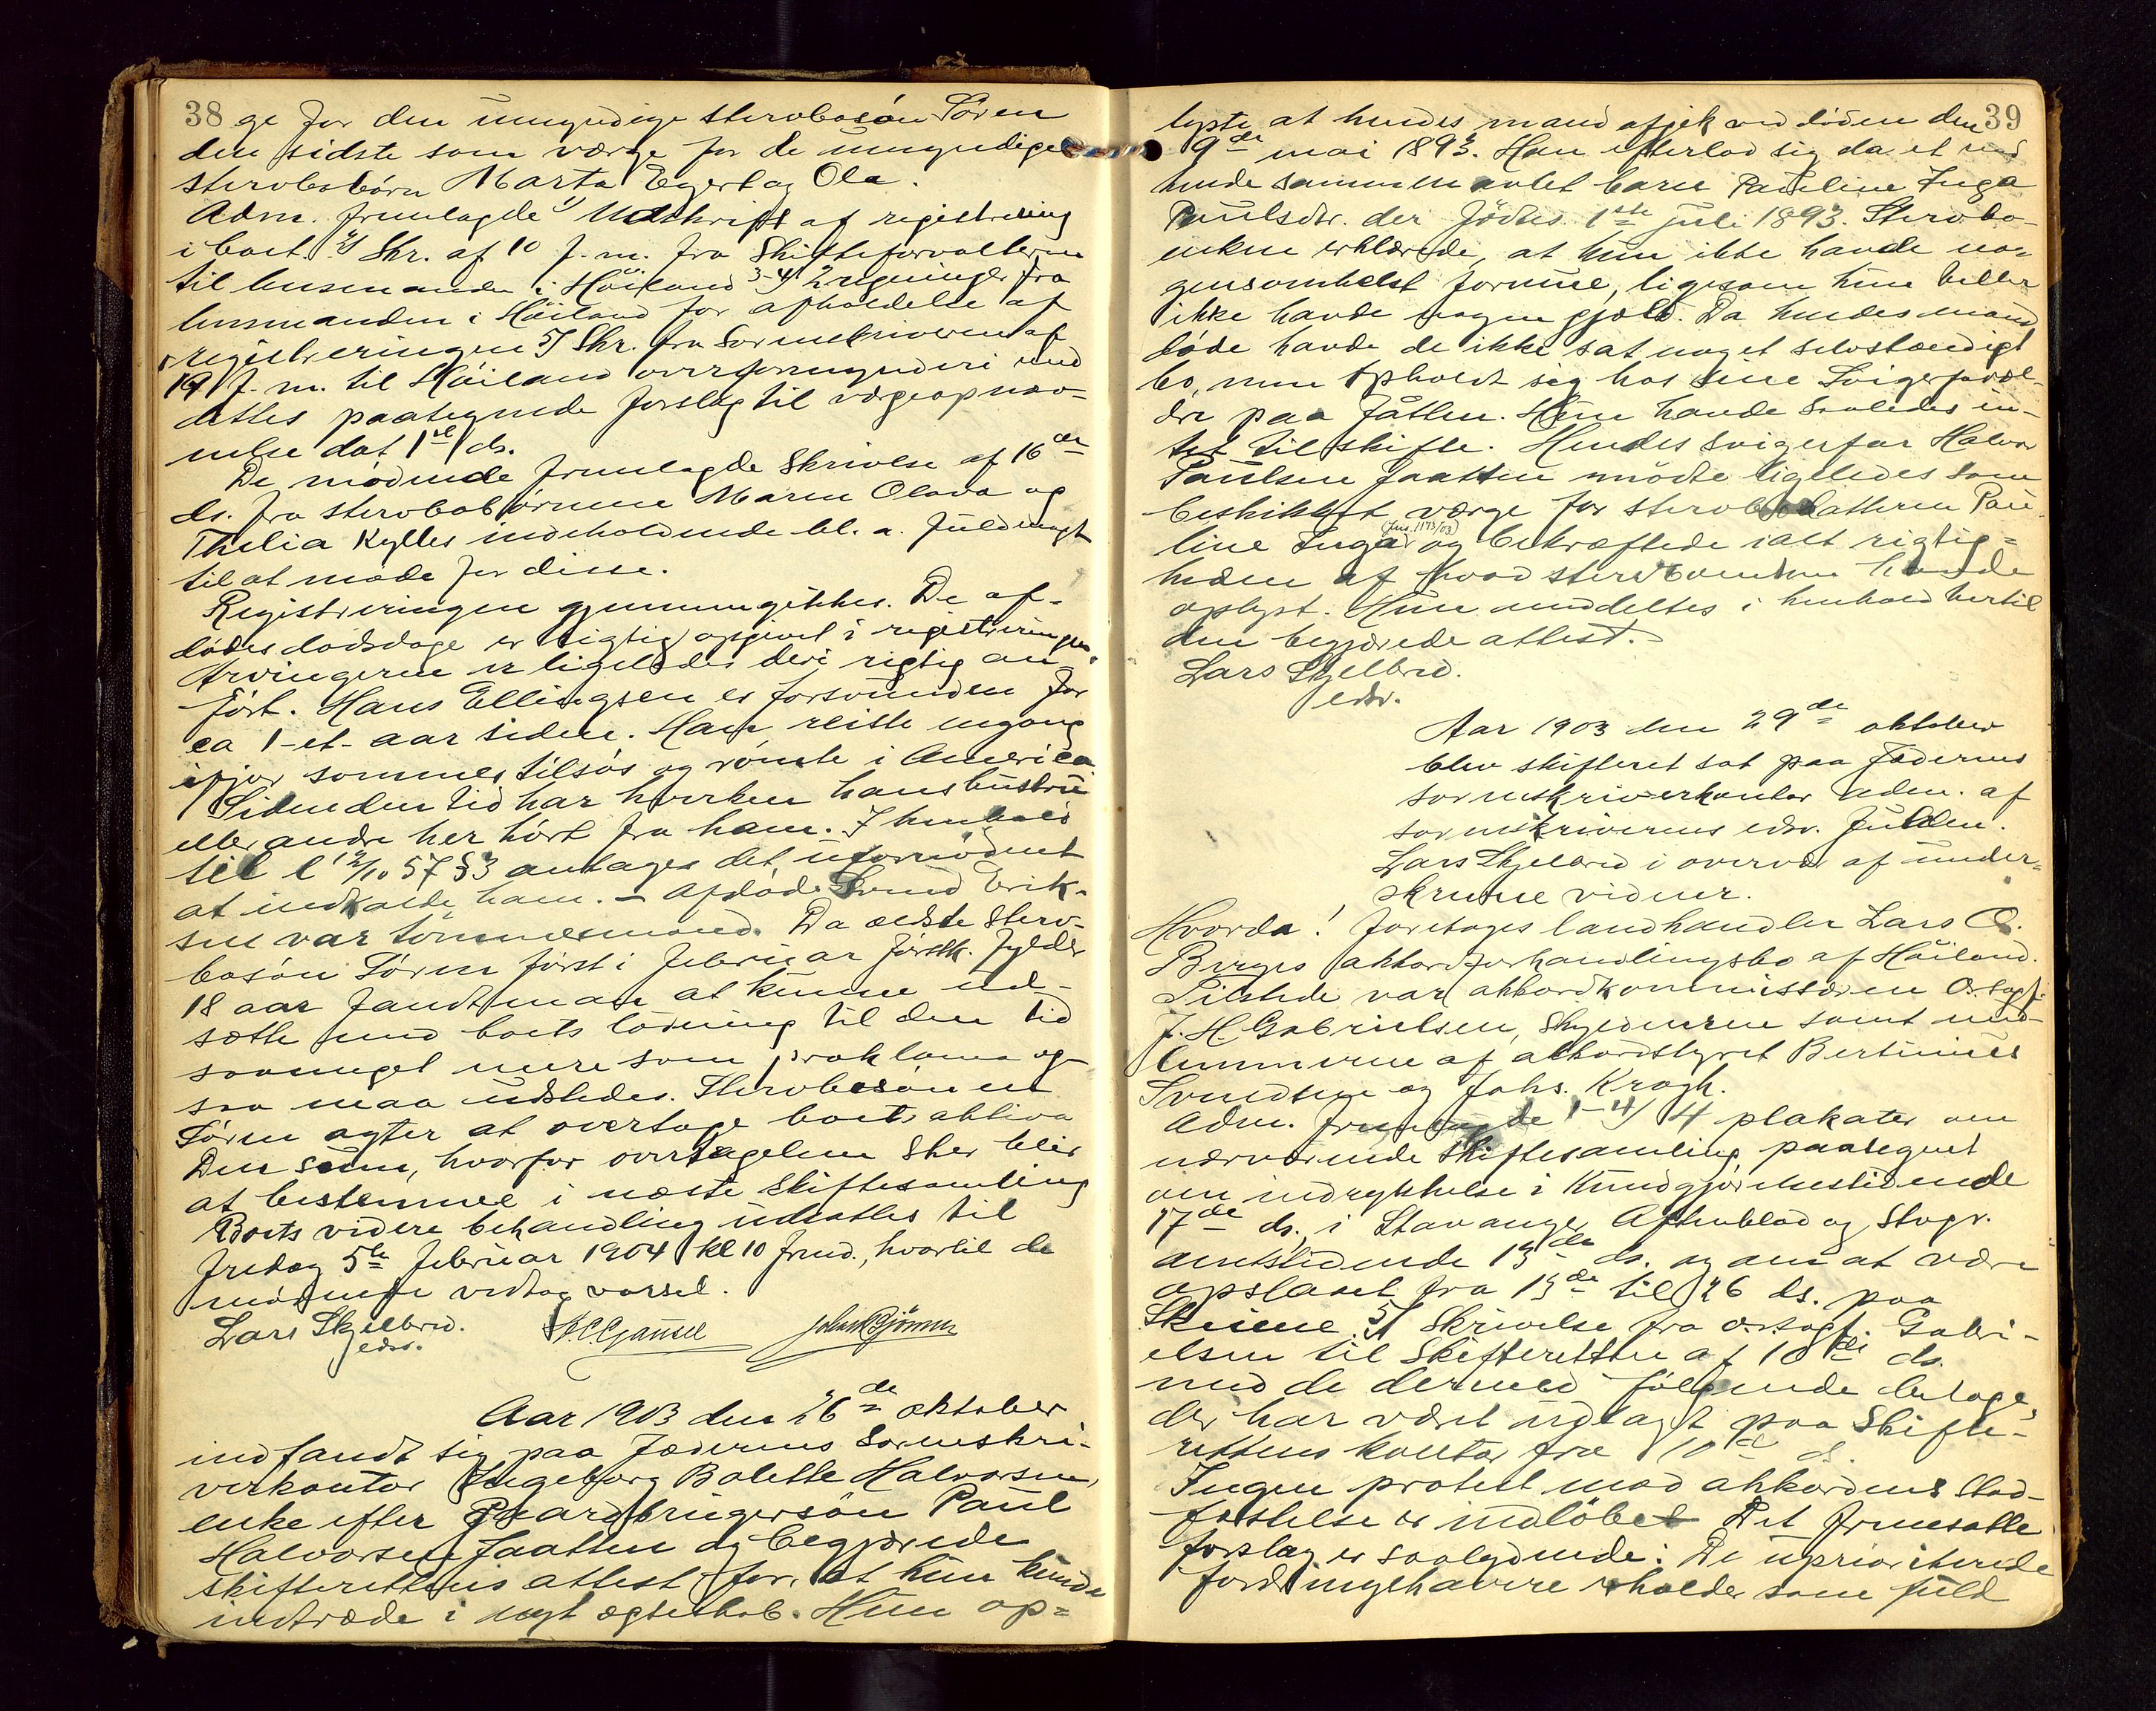 38
ge for den umyndige sterbosön Sören
den sidste som værge for de umyndige
sterbobörn Marta Egert og Ola.
Adm. fremlagde 1) Udskrift af registrering
i boet. 2) Skr. af 10 f. m. fra Skifteforvalteren
til lensmanden i Höiland 3-4) 2 regninger fra
lensmanden i Höiland for afholdelse af
registreringen 5) Skr. fra Sorenskriveren af
19 f. m. til Höiland overformynderi med
dettes paategnede forslag til værgeopnæv-
nelse dat 1ste ds.
De mødende fremlagde Skrivelse af 16de
ds. fra sterbobörnene Maren Olava og
Thilia Kylles indeholdende bl. a. fuldmagt
til at møde for disse.
Registreringen gjennemgikkes. De af-
dødes dødsdage er rigtig opgivet i registreringen.
Arvingerne er ligeledes deri rigtig an-
fört. Hans Ellingsen er forsvunden for
ca 1-et-aar siden. Han reiste engang
ifjor sommer tilsös og römte i America.
Siden den tid har hverken hans hustru
eller andre her hört fra ham. I henhold
til l 12/10 57 § 3 antages det ufornödent
at indkalde ham. – Afdöde Svend Erik-
sen var tömmermand. Da ældste sterv-
bosön Sören först i februar förstk. fylder
18 aar fandt man at kunne ud-
sætte med boets lösning til den tid
saameget mere som proklama og-
saa maa udstedes. Stervbosönnen
Sören agter at overtage boets aktiva
Den sum, hvorfor overtagelsen sker blir
at bestemme i næste skiftesamling
Boets videre behandling udsattes til
fredag 5te februar 1904 kl 10 fmd., hvortil de
mödende vedtog varsel.
Lars Skjelbred.
edsv.
H. C. Gausel
John K Bjönnes
Aar 1903 den 26de oktober
indfandt sig paa Jæderens Sorenskri-
verkontor Ingeborg Bolette Halvorsen,
enke efter Gaardbrugersön Paul
Halvorsen Jaatten og begjærede
skifterettens attest for, at hun kunde
indtræde i nyt ægteskab. Hun op-
39
lyste at hendes mand afgik ved döden den
9de mai 1893. Han efterlod sig da et med
hende sammenavlet barn Pauline Inga
Paulsdtr. der födtes 1ste juli 1893. Stervbo-
enken erklærede, at hun ikke havde no-
gensomhelst formue, ligesom hun heller
ikke havde nogen gjæld. Da hendes mand
döde havde de ikke sat noget selvstændigt
bo, men opholdt sig hos sine Svigerforæl-
dre paa Jåtten. Hun havde saaledes in-
tet til skifte. Hendes svigerfar Halvor
Paulsen Jaatten mödte ligeledes som
beskikket værge for stervbodatteren Pau-
line Inga (Jnr. 1173/03) og bekræftede ialt rigtig-
heden af hvad stervboenken havde
oplyst. Hun meddeltes i henhold hertil
den begjærede attest.
Lars Skjelbred.
edsv.
Aar 1903 den 29de oktober
blev skifteret sat paa Jæderens
sorenskriverkontor adm. af
sorenskriverens edsv. fuldm.
Lars Skjelbred i overvær af under-
skrevne vidner.
Hvorda! foretages landhandler Lars O.
Birges akkordforhandlingsbo af Höiland.
Tilstede var akkordkommissæren O.r.sagf.
J. H. Gabrielsen, Skyldneren samt med-
lemmerne af akkordstyret Bertinius
Svendsen og Johs. Kragh.
Adm. fremlagde 1-4) 4 plakater om
nærværende skiftesamling paategnet
om indrykkelse i Kundgjörelsestidende
17de ds., i Stavanger Aftenblad og Stvgr.
amtstidende 13de ds. og om at være
opslaaet fra 13de til 26 ds. paa
Skiene. 5) Skrivelse fra o.r.sagf. Gabri-
elsen til Skifteretten af 10de ds.
med de dermed fölgende bilage,
der har været udlagt paa Skifte-
rettens kontor fra 10de ds.
Ingen protest mod akkordens stad-
fæstelse er indlöbet. Det fremsatte
forslag er saalydende: De uprioriterede
fordringshavere erholder som fuld